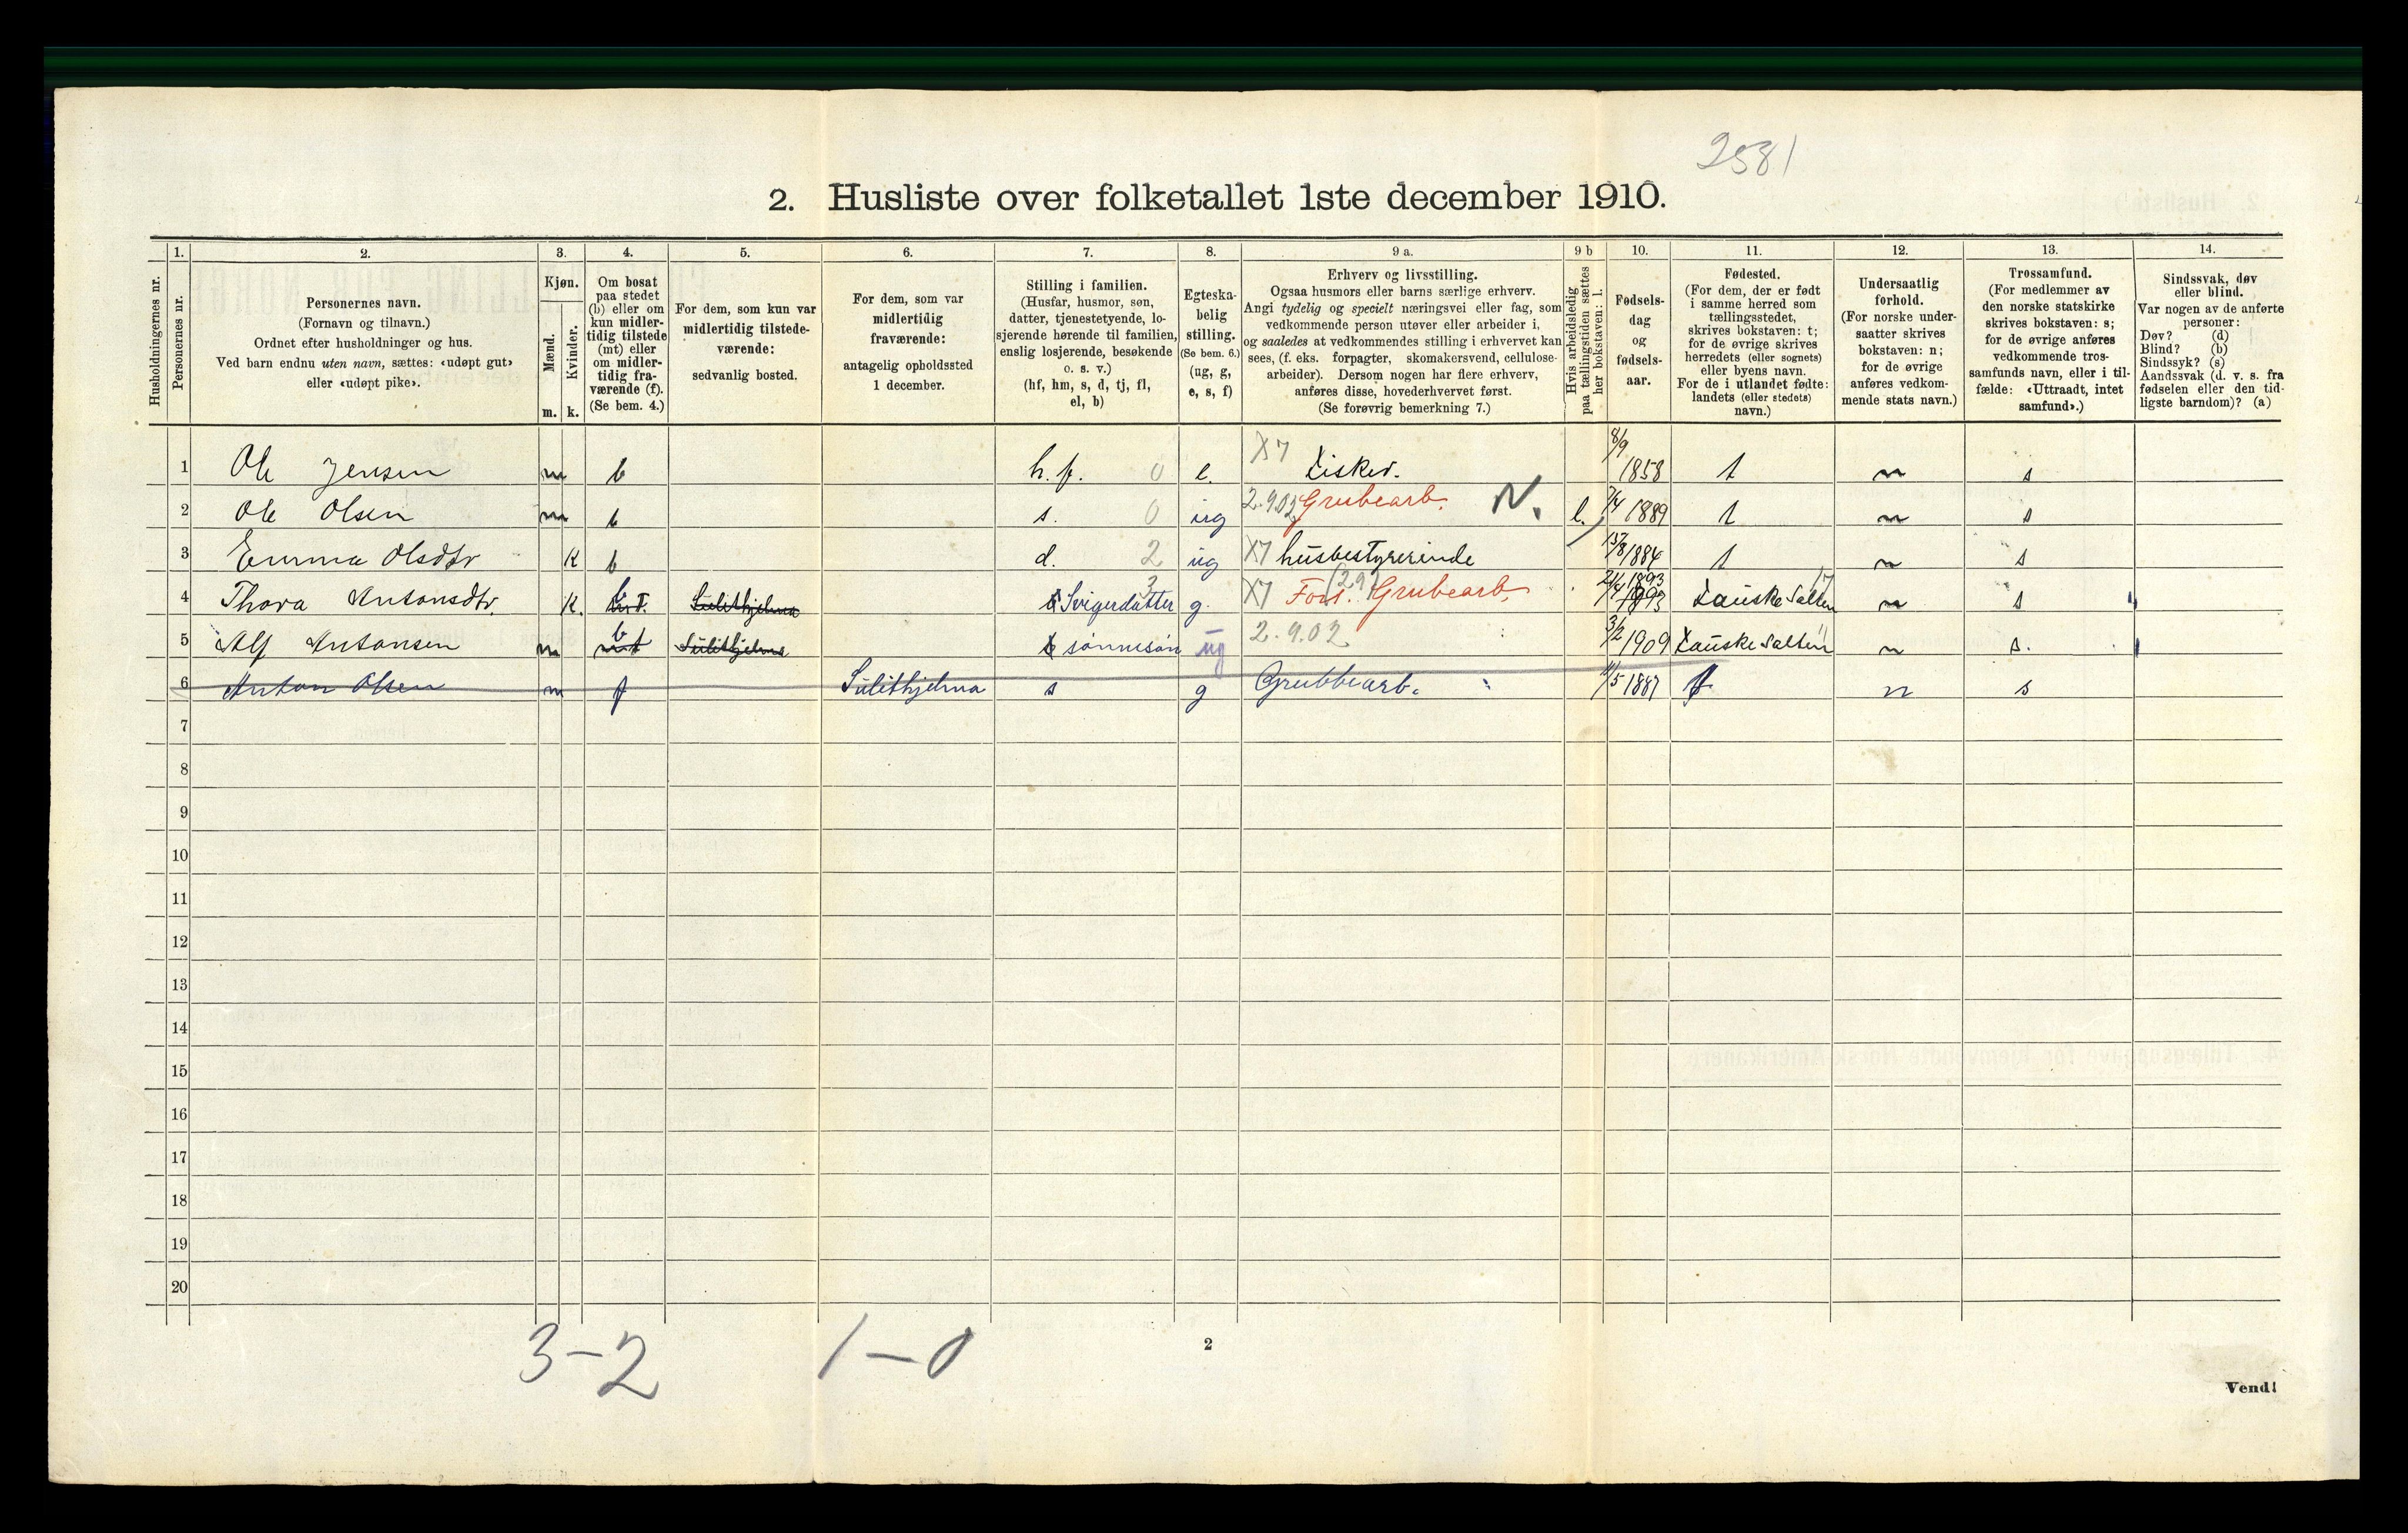 2581
2. Husliste over folketallet 1ste december 1910.
Husholdningernes nr.
1. Personernes nr.
2. Personernes navn. (Fornavn og tilnavn.) Ordnet efter husholdninger og hus. Ved barn endnu uten navn, sættes: «udøpt gut» eller «udøpt pike».
3. Kjøn. Mænd. m. Kvinder. k.
4. Om bosat paa stedet (b) eller om kun midlertidig tilstede (mt) eller om midlertidig fraværende (f). (Se bem. 4.)
5. For dem, som kun var midlertidig tilstedeværende: sedvanlig bosted.
6. For dem, som var midlertidig fraværende: antagelig opholdssted 1 december.
7. Stilling i familien. (Husfar, husmor, søn, datter, tjenestetyende, losjerende hørende til familien, enslig losjerende, besøkende o. s. v.) (hf, hm, s, d, tj, fl, el, b)
8. Egteskabelig stilling. (Se bem. 6.) (ug, g, e, s, f)
9 a. Erhverv og livsstilling. Ogsaa husmors eller barns særlige erhverv. Angi tydelig og specielt næringsvei eller fag, som vedkommende person utøver eller arbeider i, og saaledes at vedkommendes stilling i erhvervet kan sees, (f. eks. forpagter, skomakersvend, cellulosearbeider). Dersom nogen har flere erhverv, anføres disse, hovederhvervet først. (Se forøvrig bemerkning 7.)
9 b Hvis arbeidsledig paa tællingstiden sættes her bokstaven: l.
10. Fødselsdag og fødselsaar.
11. Fødested. (For dem, der er født i samme herred som tællingsstedet, skrives bokstaven: t; for de øvrige skrives herredets (eller sognets) eller byens navn. For de i utlandet fødte: landets (eller stedets) navn.)
12. Undersaatlig forhold. (For norske undersaatter skrives bokstaven: n; for de øvrige anføres vedkommende stats navn.)
13. Trossamfund. (For medlemmer av den norske statskirke skrives bokstaven: s; for de øvrige anføres vedkommende trossamfunds navn, eller i tilfælde: «Uttraadt, intet samfund».)
14. Sindssvak, døv eller blind. Var nogen av de anførte personer: Døv? (d) Blind? (b) Sindssyk? (s) Aandssvak (d. v. s. fra fødselen eller den tidligste barndom)? (a)
1 Ole Jensen m b h. f. 0 e. X7 Fisker. 8/9 1858 t n s
2 Ole Olsen m b s. 0 ug 2.902 Grubearb. N. l. 7/4 1889 t n s
3 Emma Olsdtr K b d. 2 ug X7 husbestyrerinde 15/8 1884 t n s
4 Thora Antonsdtr. K. b Sulithjelma Svigerdatter 3 g. X7 Fors. Grubearb. 21/4 1893 Fauske Salten 17 n s
5 Alf Antonsen m b Sulithjelma sønnesøn ug 2.9.02 3/2 1909 Fauske Salten 11 n s.
6 Anton Olsen m f Sulithjelma s g Grubbearb. 11/5 1887 n s
7
8
9
10
11
12
13
14
15
16
17
18
19
20
3-2 1-0
2
Vend!